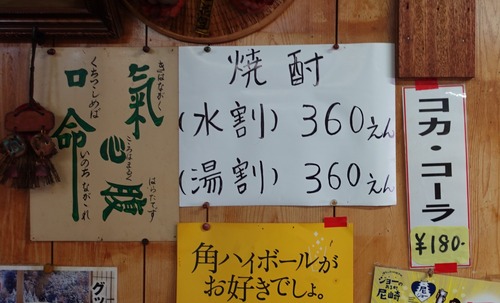 氣
きはながく
心
こころはまるく
口
くちつつしめば
命
いのちながかれ
焼酎
(水割) 360えん
(湯割) 360えん
コカ・コーラ
¥180-
角ハイボールが
お好きでしょ。
グッ
尼崎